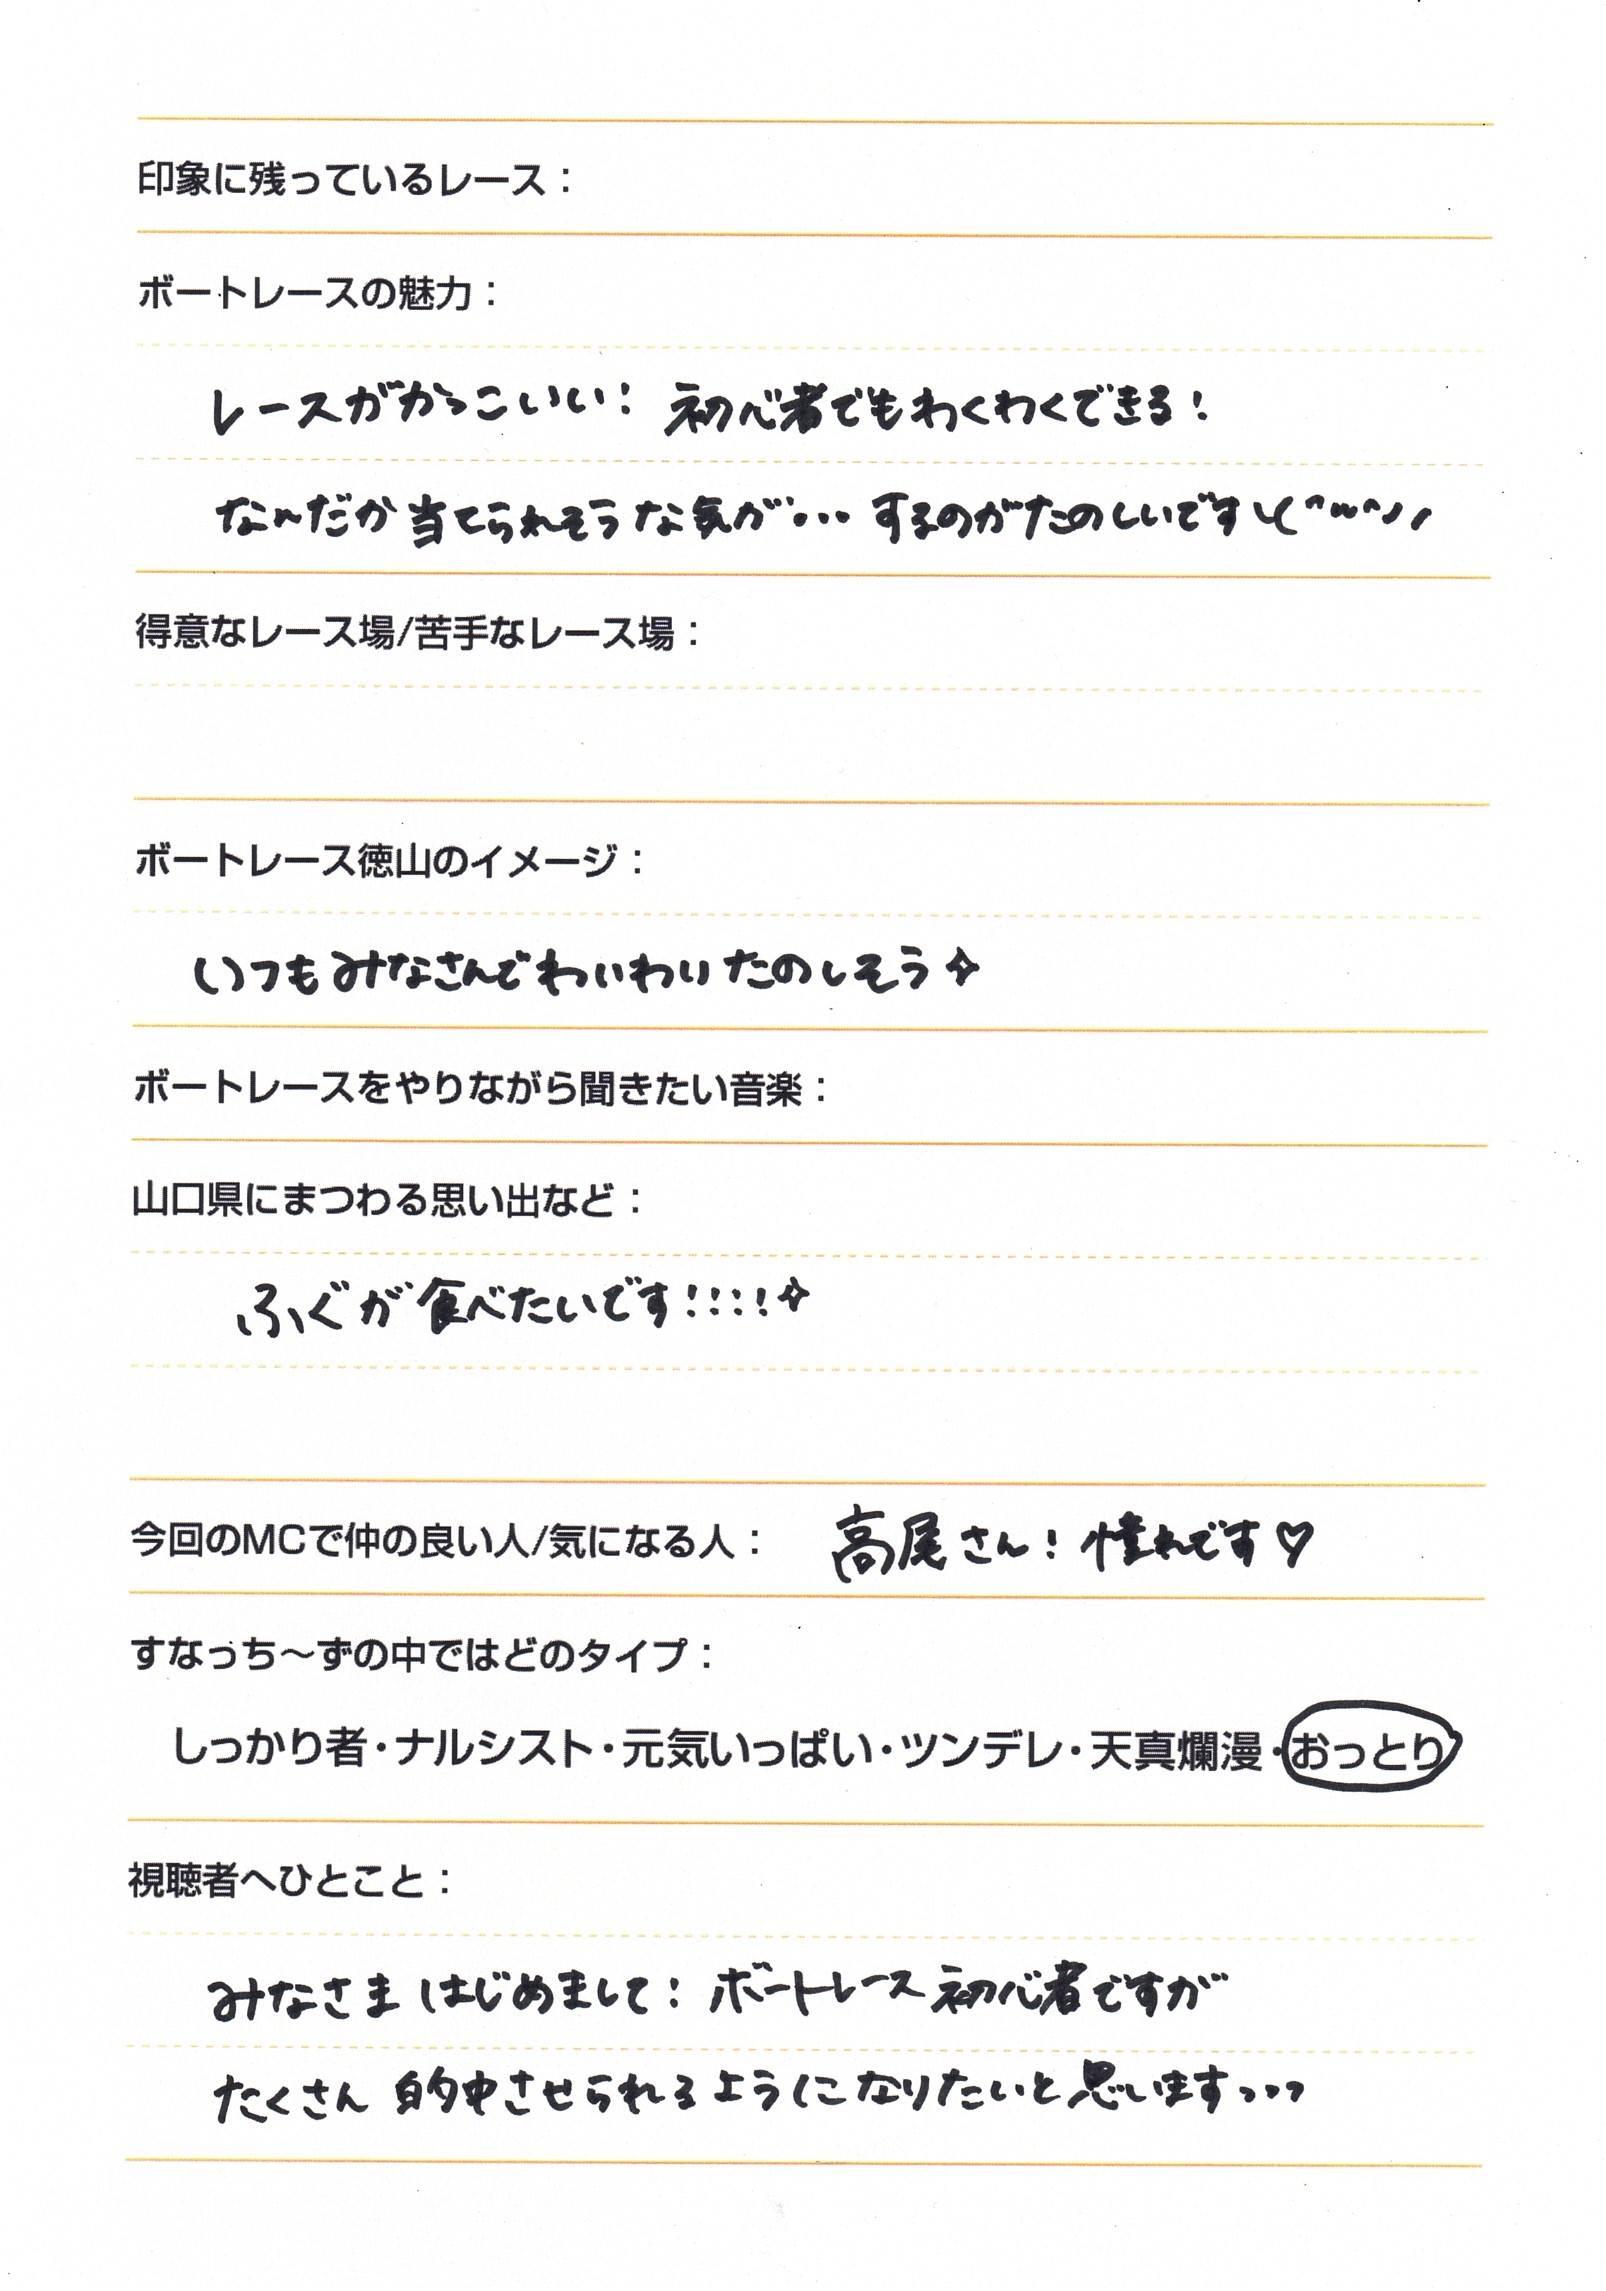 印象に残っているレース：
ボートレースの魅力：
レースがかっこいい！ 初心者でもわくわくできる！
なんだか当てられそうな気が… するのがたのしいです\(^ω^)/
得意なレース場/苦手なレース場：
ボートレース徳山のイメージ：
いつもみなさんでわいわいたのしそう✧
ボートレースをやりながら聞きたい音楽：
山口県にまつわる思い出など：
ふぐが食べたいです！！！！✧
今回のMCで仲の良い人/気になる人： 高尾さん！ 憧れです♡
すなっち〜ずの中ではどのタイプ：
しっかり者・ナルシスト・元気いっぱい・ツンデレ・天真爛漫・おっとり
視聴者へひとこと：
みなさま はじめまして！ ボートレース初心者ですが
たくさん 的中させられるようになりたいと思いますっっっ